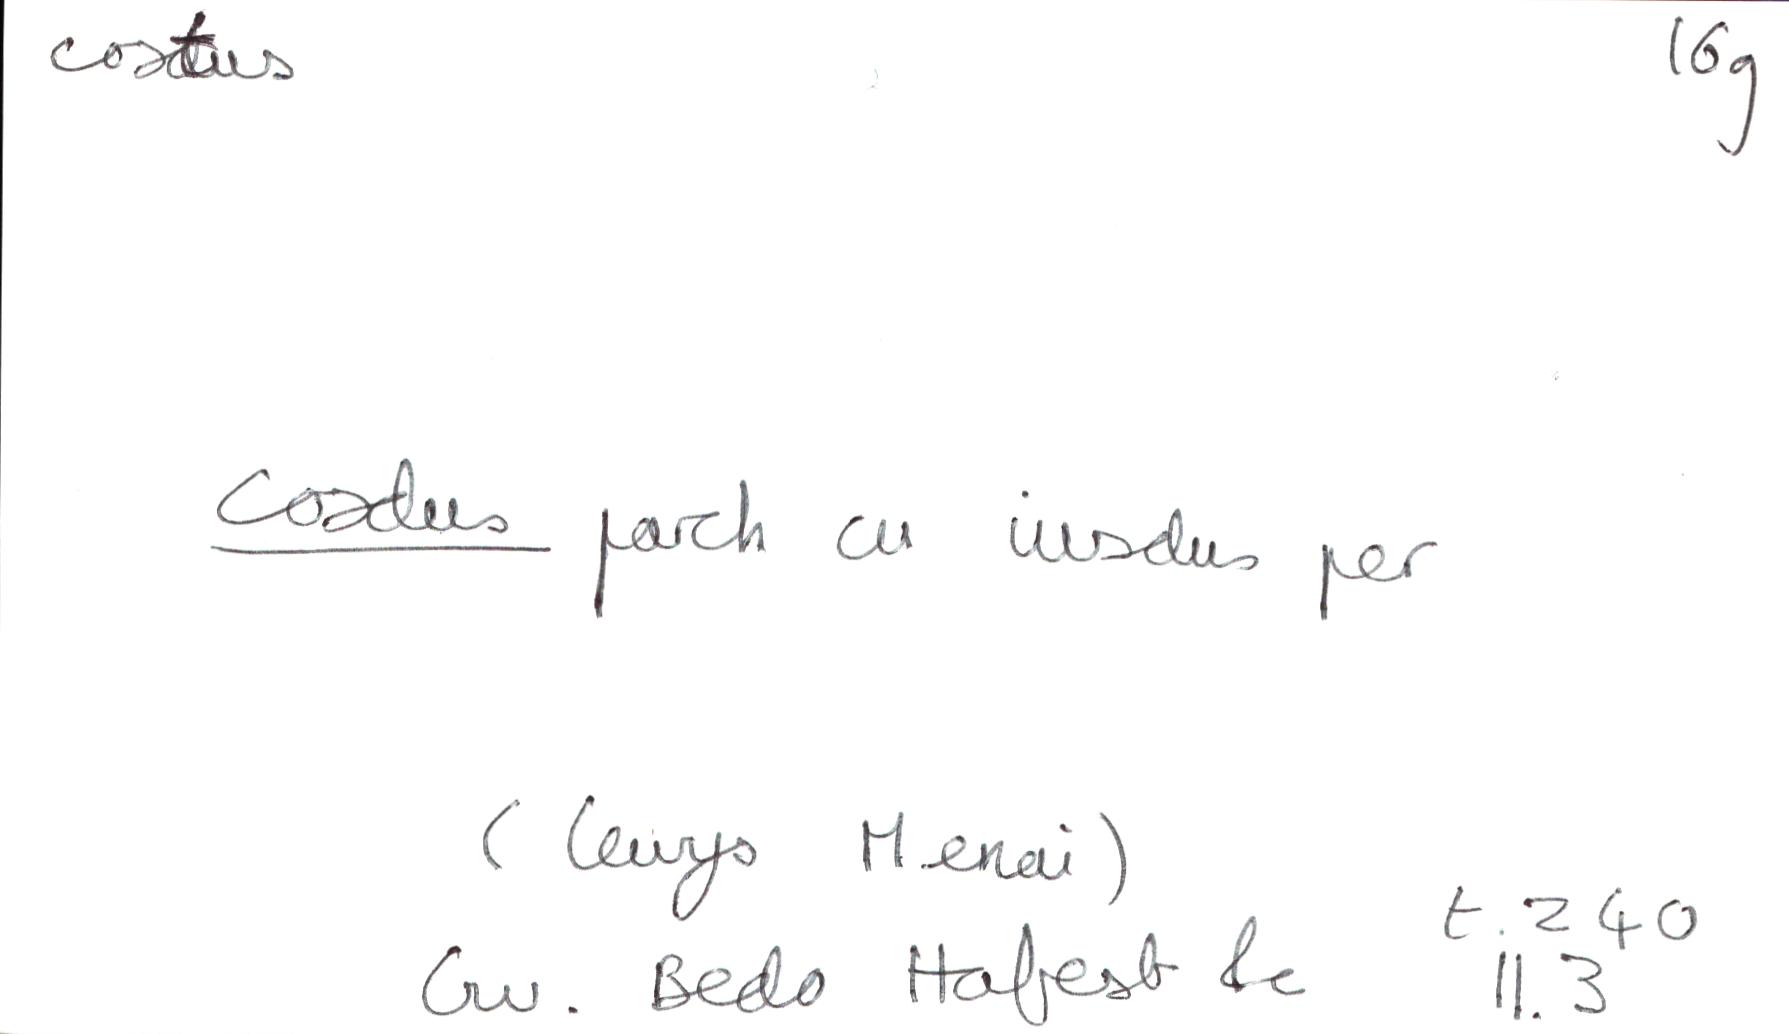 costus 16g
Cosdus parch cu iusdus per
(Lewys Menai)
Gw. Bedo Hafesb &c t. 240
11.3